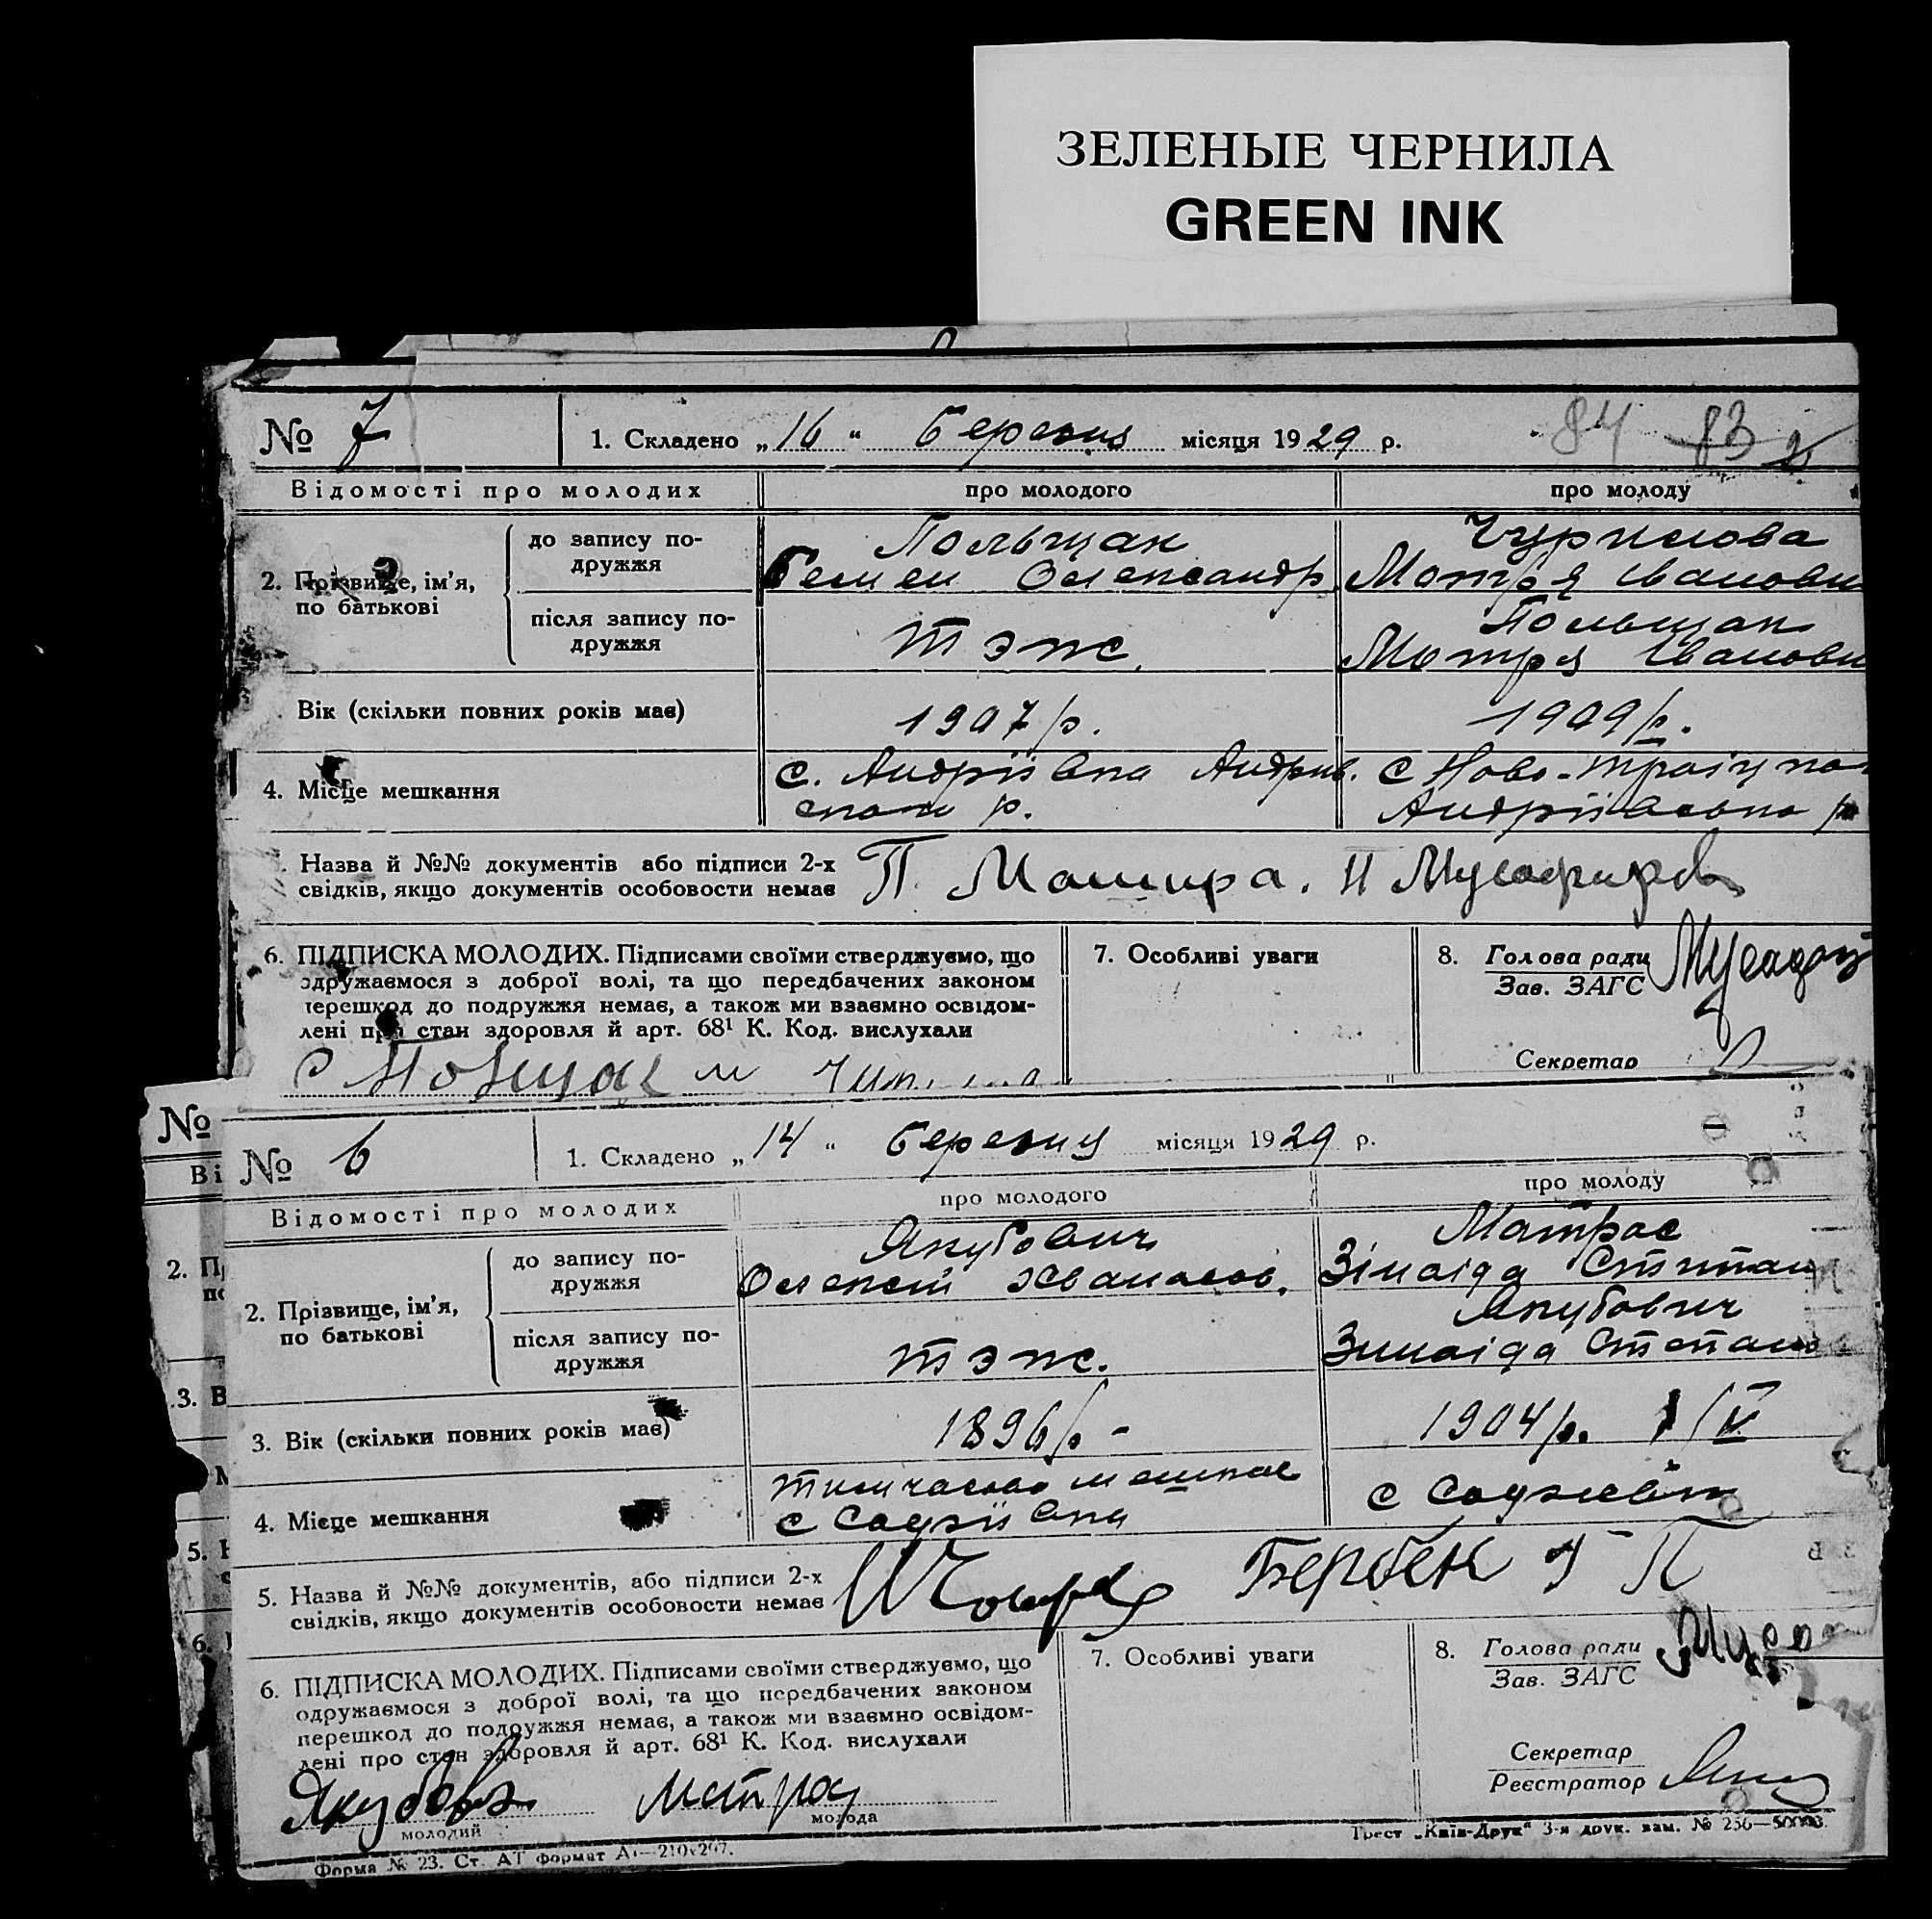 ЗЕЛЕНЫЕ ЧЕРНИЛА
GREEN INK
№ 7
1. Складено „16“ березня місяця 1929 р.
84 83
Відомості про молодих
про молодого
про молоду
2. Прізвище, ім’я,
по батькові
до запису по-
дружжя
Польщак
Семен Олександр.
Мотря Іванови
після запису по-
дружжя
тэж.
Польщак
Мотря Іванови
Вік (скільки повних років має)
1907 р.
1909 р.
4. Місце мешкання
с. Андріївка Андрів.
ского р.
с Ново-Троіцко
Андріївського р
Назва й №№ документів або підписи 2-х
свідків, якщо документів особовости немає
П. Машира. П Мусафиров
6. ПІДПИСКА МОЛОДИХ. Підписами своїми стверджуємо, що
одружаємося з доброї волі, та що передбачених законом
перешкод до подружжя немає, а також ми взаємно освідом-
лені про стан здоровля й арт. 68¹ К. Код. вислухали
7. Особливі уваги
8. Голова ради
Зав. ЗАГС
Секретар
С Полщак м
№
Ві
№ 6
1. Складено „14“ березня місяця 1929 р.
Відомості про молодих
про молодого
про молоду
2. Прізвище, ім’я,
по батькові
до запису по-
дружжя
Якубович
Олексій
Матрас
Зінаіда Степан
після запису по-
дружжя
тэж.
Якубович
Зинаіда Степан
3. Вік (скільки повних років має)
1896 р.
1904 р. 1/IV
4. Місце мешкання
тимчасово мешкає
с Софіївка
с Софієвка
5. Назва й №№ документів, або підписи 2-х
свідків, якщо документів особовости немає
Бербек Г П
6. ПІДПИСКА МОЛОДИХ. Підписами своїми стверджуємо, що
одружаємося з доброї волі, та що передбачених законом
перешкод до подружжя немає, а також ми взаємно освідом-
лені про стан здоровля й арт. 68¹ К. Код. вислухали
7. Особливі уваги
8. Голова ради
Зав. ЗАГС
Секретар
Реєстратор
Якубович
молодий
Матрас
молода
Форма № 23. Ст. АТ формат А₄—210×297.
Трест „Київ-Друк“ 3-я друк. зам. № 256—50000.